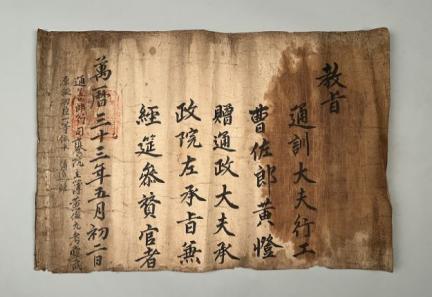 教旨
通訓大夫行工
曹佐郎黃憕
贈通政大夫承
政院左承旨兼
經筵參贊官者
萬曆三十三年五月初二日